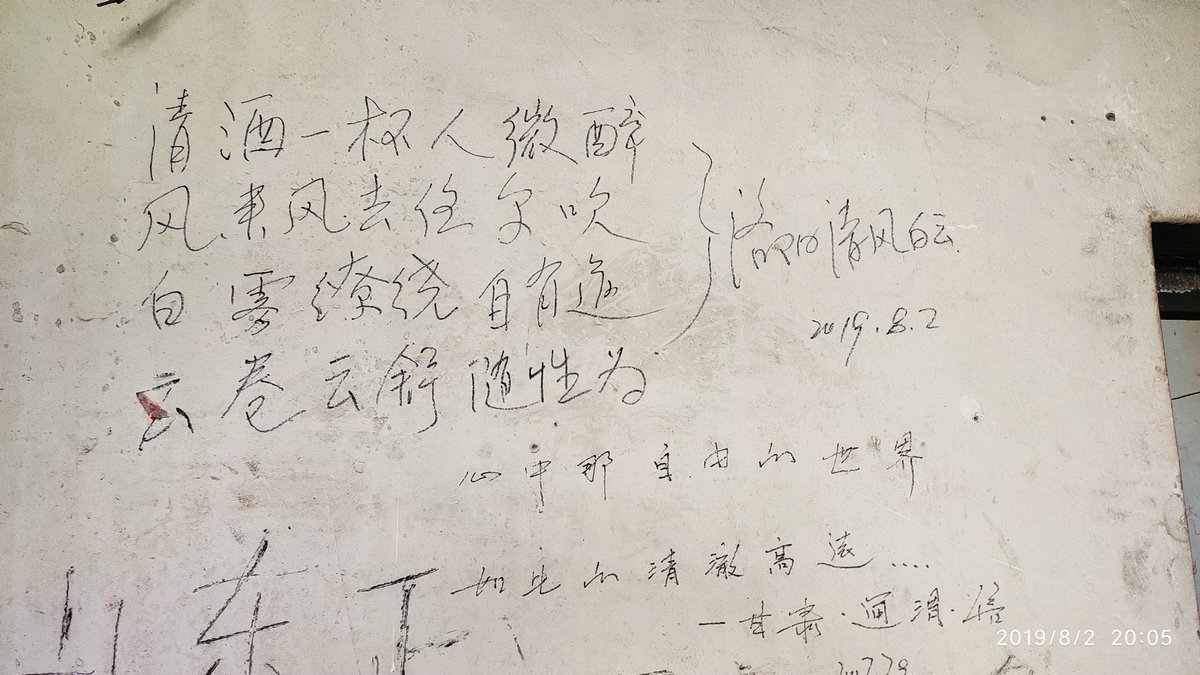 清酒一杯人微醉
风来风去任尔吹
白雾缭绕自有途
云卷云舒随性为
洛阳清风白云
2019.8.2
心中那自由的世界
如此的清澈高远....
山东
—甘肃·通渭·
2019/8/2 20:05